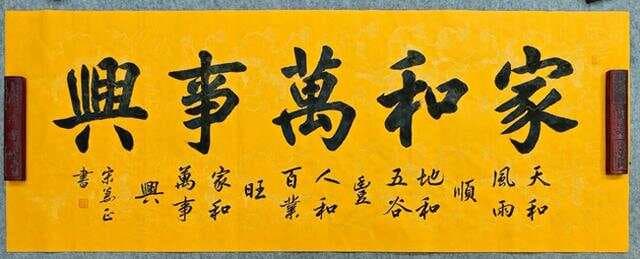 家和萬事興
天和
風雨
順
地和
五谷
豐
人和
百業
旺
家和
萬事
興
宋正
書